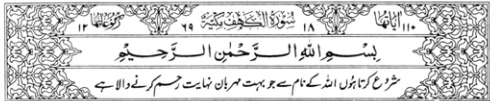 اٰیَاتُهَا ۱۱۰ ۱۸ سُوْرَةُ الْكَهْفِ مَكِّيَّةٌ ۶۹ رُكُوْعَاتُهَا ۱۲
بِسْمِ اللهِ الرَّحْمٰنِ الرَّحِيْمِ
شروع کرتا ہوں اللہ کے نام سے جو بہت مہربان نہایت رحم کرنے والا ہے